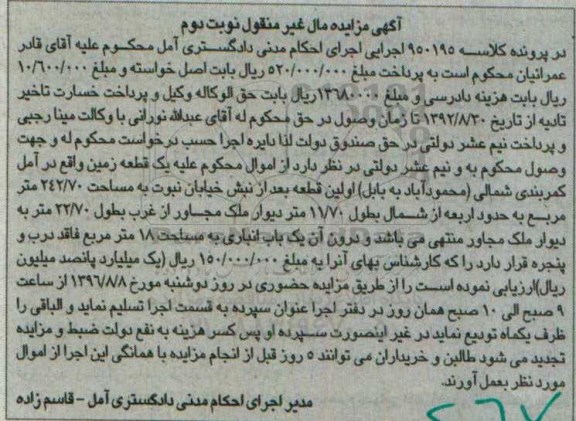 آگهی مزایده مال غیر منقول نوبت دوم
در پرونده کلاسه ۹۵۰۱۹۵ اجرایی اجرای احکام مدنی دادگستری آمل محکوم علیه آقای قادر
عمرانیان محکوم است به پرداخت مبلغ ۵۲۰/۰۰۰/۰۰۰ ریال بابت اصل خواسته و مبلغ ۱۰/۶۰۰/۰۰۰
ریال بابت هزینه دادرسی و مبلغ ۱۳۶۸۰۰۰۰ ریال بابت حق الوکاله وکیل و پرداخت خسارت تاخیر
تادیه از تاریخ ۱۳۹۲/۸/۳۰ تا زمان وصول در حق محکوم له آقای عبدالله نورانی با وکالت مینا رجبی
و پرداخت نیم عشر دولتی در حق صندوق دولت لذا دایره اجرا حسب درخواست محکوم له و جهت
وصول محکوم به و نیم عشر دولتی در نظر دارد از اموال محکوم علیه یک قطعه زمین واقع در آمل
کمربندی شمالی (محمودآباد به بابل) اولین قطعه بعد از نبش خیابان نبوت به مساحت ۲۴۲/۷۰ متر
مربع به حدود اربعه از شمال بطول ۱۱/۷۰ متر دیوار ملک مجاور از غرب بطول ۲۲/۷۰ متر به
دیوار ملک مجاور منتهی می باشد و درون آن یک باب انباری به مساحت ۱۸ متر مربع فاقد درب و
پنجره قرار دارد را که کارشناس بهای آنرا به مبلغ ۱۵۰/۰۰۰/۰۰۰ ریال (یک میلیارد پانصد میلیون
ریال)ارزیابی نموده است را از طریق مزایده حضوری در روز دوشنبه مورخ ۱۳۹۶/۸/۸ از ساعت
۹ صبح الی ۱۰ صبح همان روز در دفتر اجرا عنوان سپرده به قسمت اجرا تسلیم نماید و الباقی را
ظرف یکماه تودیع نماید در غیر اینصورت سپرده او پس کسر هزینه به نفع دولت ضبط و مزایده
تجدید می شود طالبن و خریداران می توانند ۵ روز قبل از انجام مزایده با هماهنگی این اجرا از اموال
مورد نظر بعمل آورند.
مدیر اجرای احکام مدنی دادگستری آمل - قاسم زاده